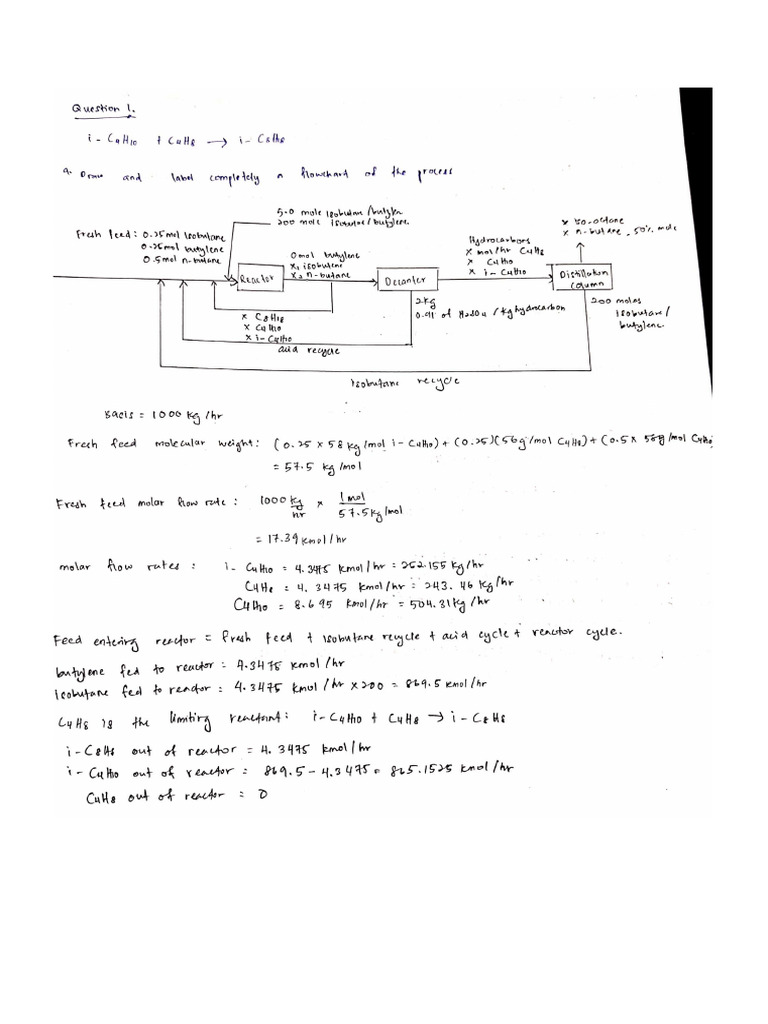 Question 1.
i - C4H10 + C4H8 → i - C8H8
a. Draw and label completely a flowchart of the process
5.0 mole isobutane / butylen
200 mole isobutane / butylene.
Fresh feed : 0.25 mol Isobutane
0.25 mol butylene
0.5 mol n-butane
Reactor
0 mol butylene
x1 isobutene
x2 n-butane
Decanter
Hydrocarbons
x mol/hr C4H8
x C4H10
x i - C4H10
Distillation
column
x iso-octane
x n-butane , 50% mole
200 moles
isobutane /
butylene.
2 kg
0.91 of H2SO4 / kg hydrocarbon
x C8H18
x C4H10
x i-C4H10
acid recycle
Isobutane recycle
Basis = 1000 kg /hr
Fresh feed molecular weight : (0.25 x 58 kg/mol i - C4H10) + (0.25)(56 g/mol C4H8) + (0.5 x 58 g/mol C4H10
= 57.5 kg/mol
Fresh feed molar flow rate : 1000 kg/hr x 1 mol/57.5 kg/mol
= 17.39 kmol/hr
molar flow rates : i - C4H10 = 4.3475 kmol/hr = 252.155 kg/hr
C4H8 = 4.3475 kmol/hr = 243.46 kg/hr
C4H10 = 8.695 kmol/hr = 504.31 kg/hr
Feed entering reactor = fresh feed + isobutane recycle + acid cycle + reactor cycle.
butylene fed to reactor : 4.3475 kmol/hr
isobutane fed to reactor : 4.3475 kmol/hr x 200 = 869.5 kmol/hr
C4H8 is the limiting reactant : i - C4H10 + C4H8 → i - C8H8
i - C8H8 out of reactor = 4.3475 kmol/hr
i - C4H10 out of reactor = 869.5 - 4.3475 = 865.1525 kmol/hr
C4H8 out of reactor = 0